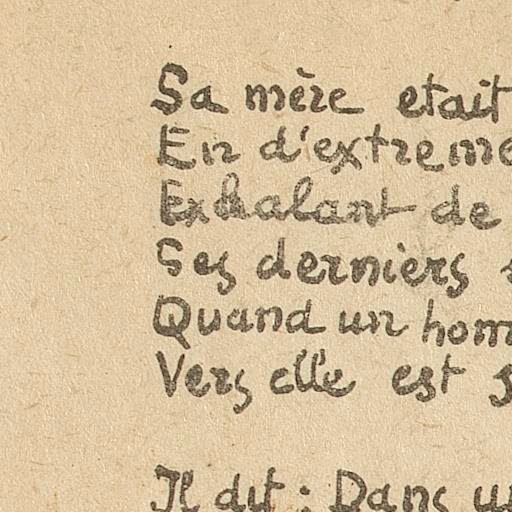 Sa mère etait
En d'extreme
Exhalant de
Ses derniers
Quand un hom
Vers elle est s
Il dit : Dans un